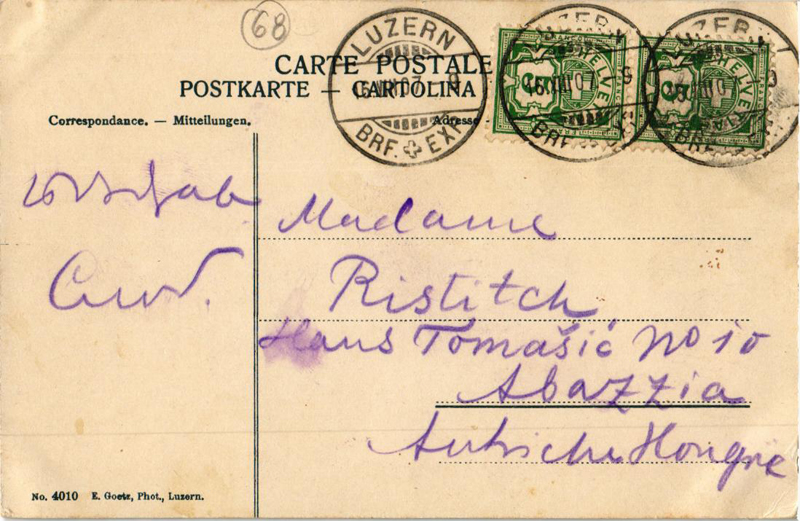 68
CARTE POSTALE
POSTKARTE — CARTOLINA
LUZERN
BRF. EXP.
LUZERN
HELVETIA
5
LUZERN
HELVETIA
5
Correspondance. — Mitteilungen.
Adresse
Madame
Ristitch
Haus Tomašić No 10
Abazzia
Autriche Hongrie
No. 4010 E. Goetz, Phot., Luzern.